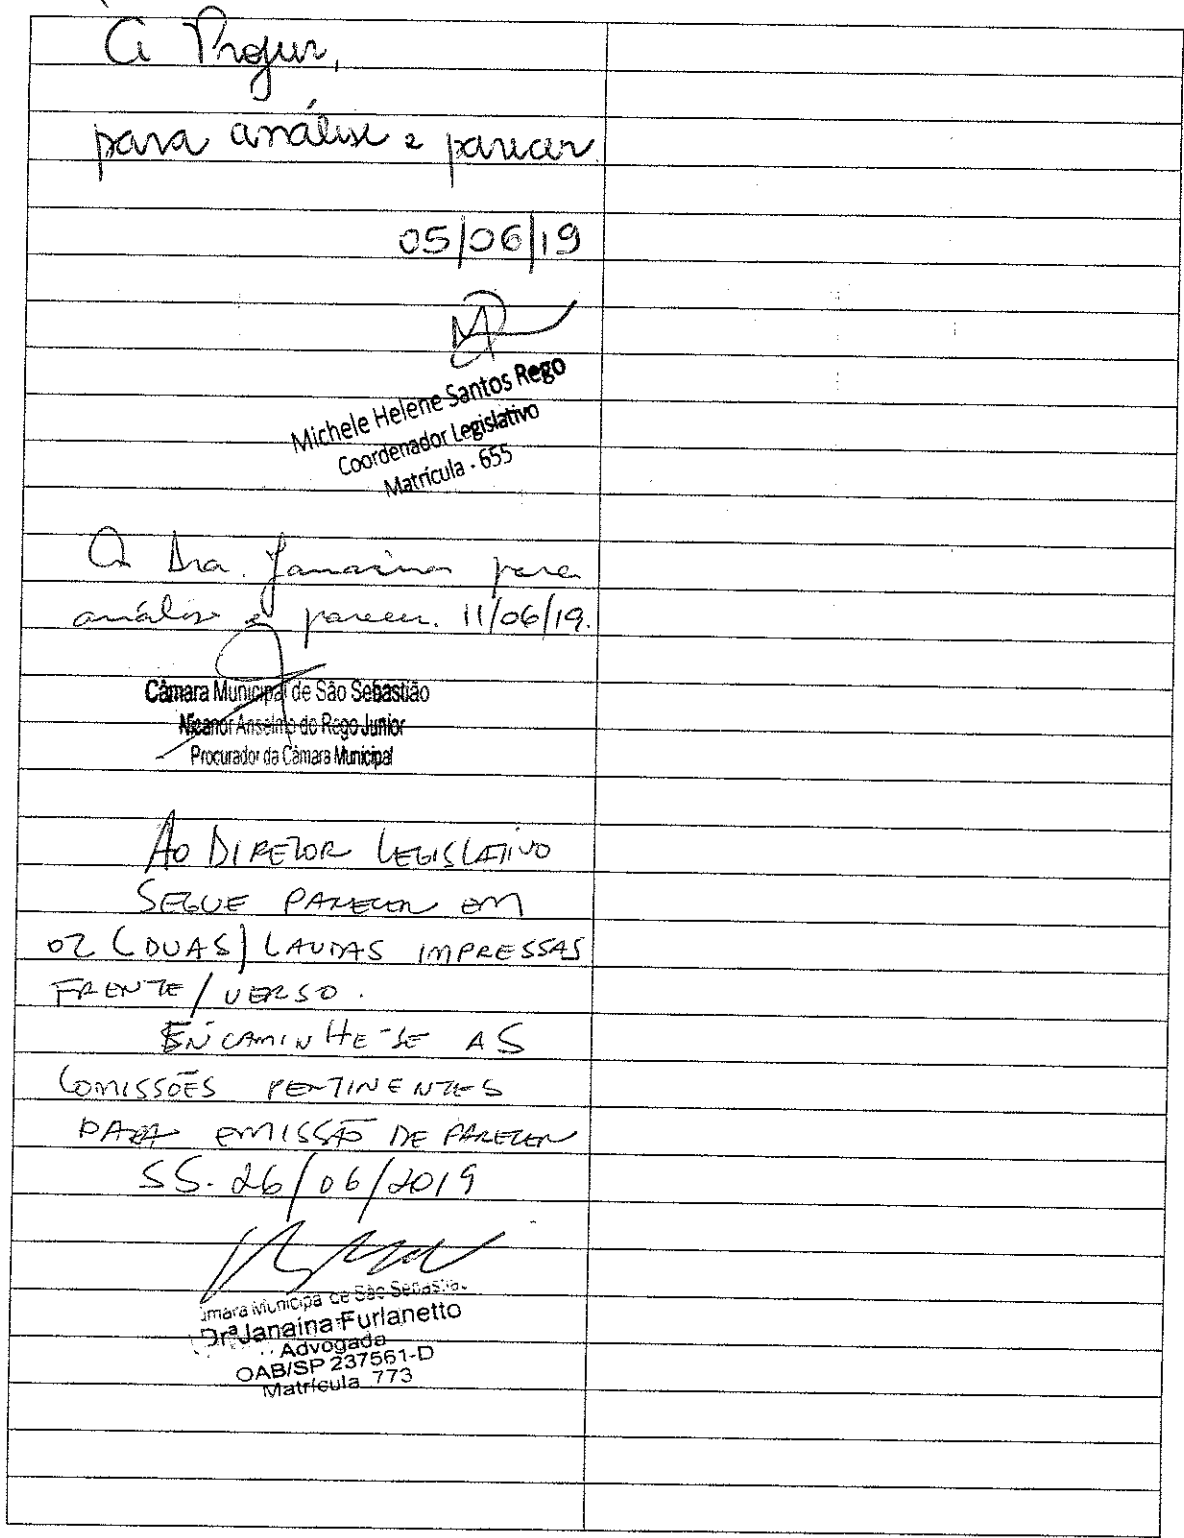 À Projur,
para análise e parecer.
05/06/19
Michele Helene Santos Rego
Coordenador Legislativo
Matrícula - 655
A Dra. Janaina para
análise e parecer. 11/06/19.
Câmara Municipal de São Sebastião
Nicanor Anselmo do Rego Junior
Procurador da Câmara Municipal
AO DIRETOR LEGISLATIVO
SEGUE PARECER EM
02 (DUAS) LAUDAS IMPRESSAS
FRENTE/VERSO.
ENCAMINHE-SE AS
COMISSÕES PERTINENTES
PARA EMISSÃO DE PARECER
SS. 26/06/2019
Câmara Municipal de São Sebastião
Drª Janaina Furlanetto
Advogada
OAB/SP 237561-D
Matrícula 773